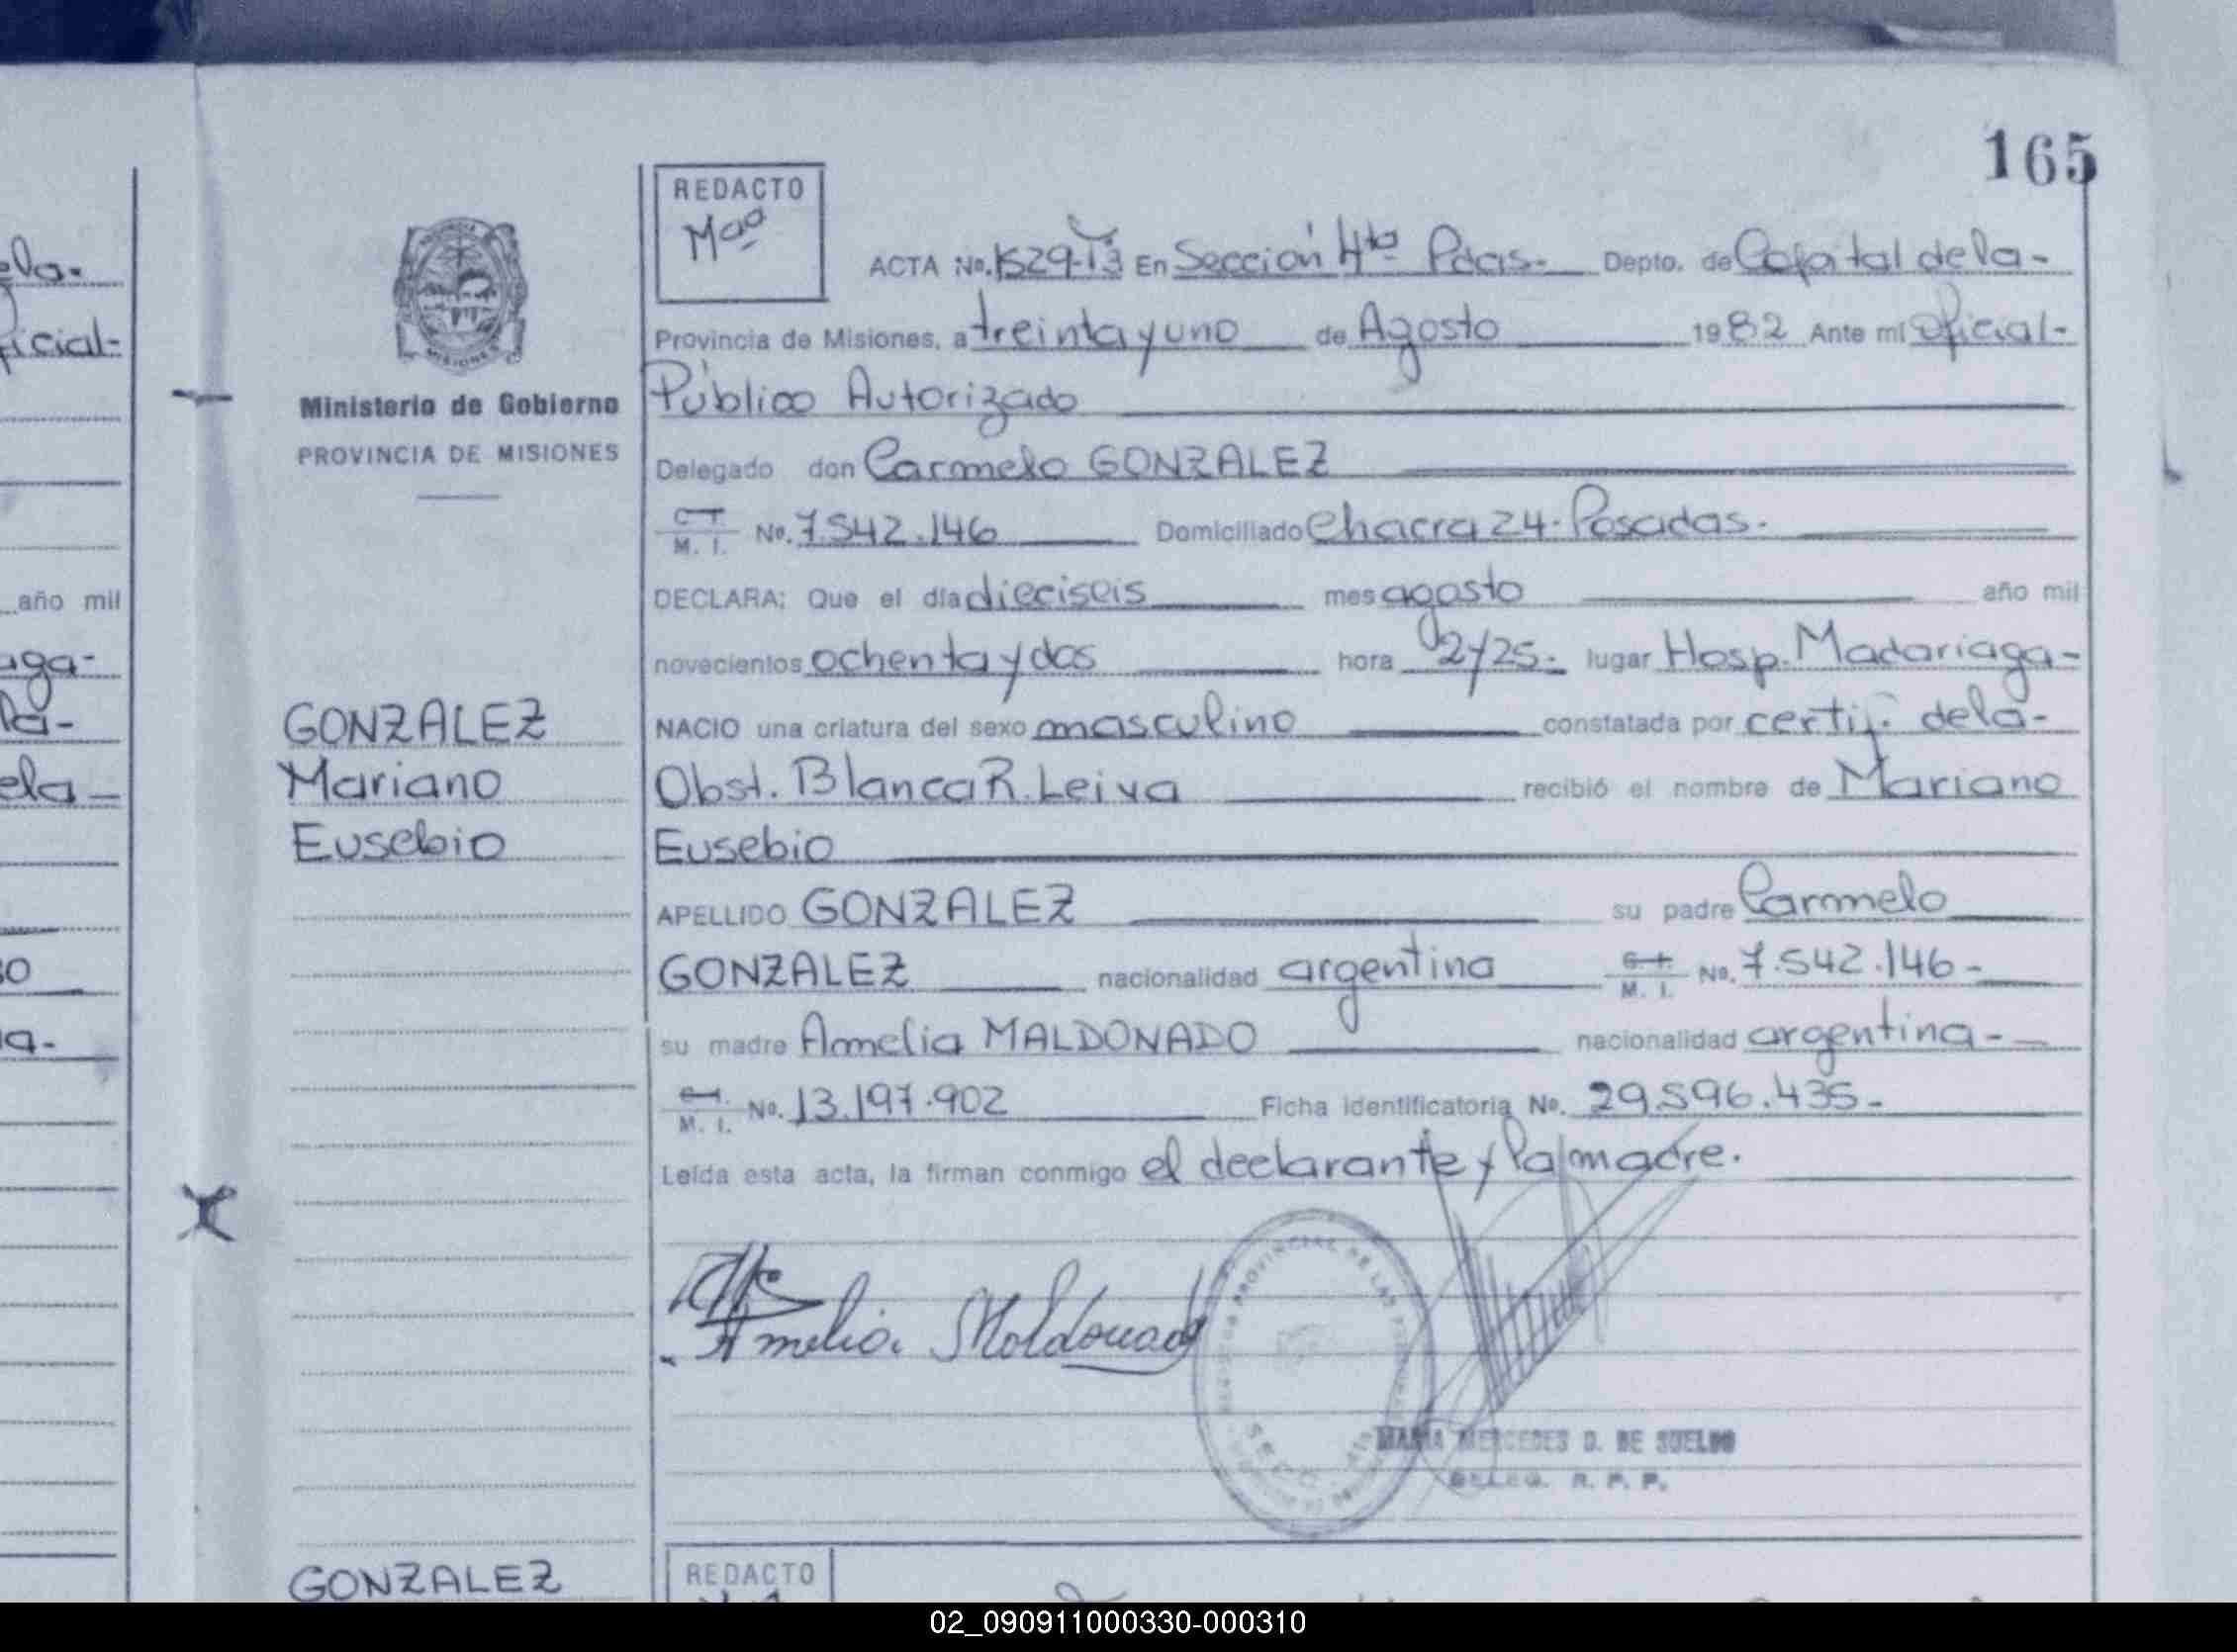 165
REDACTO
Mª
ACTA No. 1529-T3 En Sección 4ta Pdas.- Depto. de Capital de la-
Provincia de Misiones, a treinta y uno de Agosto 1982 Ante mí Oficial-
Público Autorizado
Ministerio de Gobierno
PROVINCIA DE MISIONES
Delegado don Carmelo GONZALEZ
C. I. M. I. No. 7.542.146 Domiciliado Chacra 24. Posadas.
DECLARA: Que el día dieciseis mes agosto año mil
novecientos ochenta y dos hora 2y25.- lugar Hosp. Madariaga-
NACIO una criatura del sexo masculino constatada por certif. de la-
Obst. Blanca R. Leiva recibió el nombre de Mariano
Eusebio
GONZALEZ
Mariano
Eusebio
APELLIDO GONZALEZ su padre Carmelo
GONZALEZ nacionalidad argentina C. I. M. I. No. 7.542.146-
su madre Amelia MALDONADO nacionalidad argentina-
C. I. M. I. No. 13.197.902 Ficha identificatoria No. 29.596.435-
Leída esta acta, la firman conmigo el declarante y la madre.
Amelia Maldonado
MARIA MERCEDES D. DE SUELDO
DELEG. R. P. P.
GONZALEZ
REDACTO
ela.
ficial-
año mil
aga-
la-
ela-
30
a.-
MISIONES
02_090911000330-000310